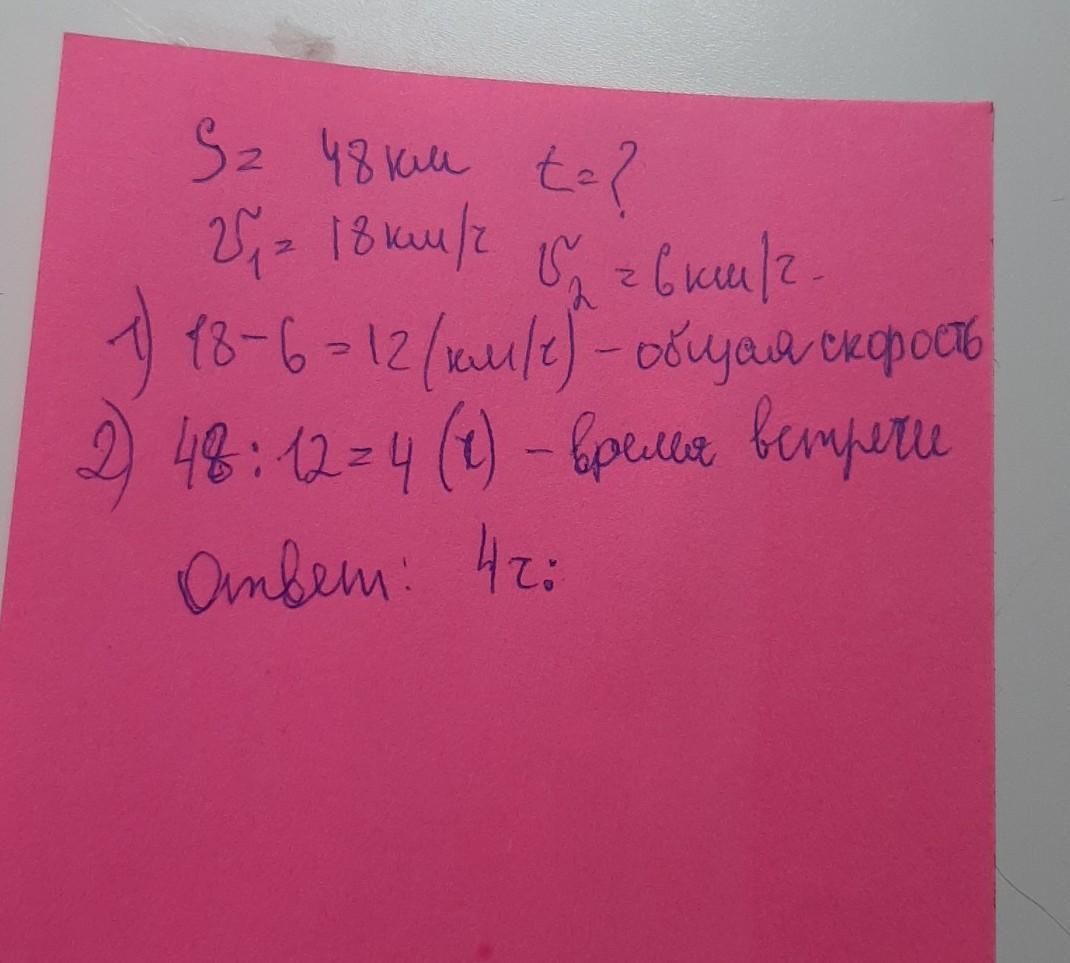 S= 48 км t=?
v₁= 18 км/ч v₂ = 6 км/ч.
1) 18-6=12 (км/ч) - общая скорость
2) 48:12=4 (ч) - время встречи
Ответ: 4ч.